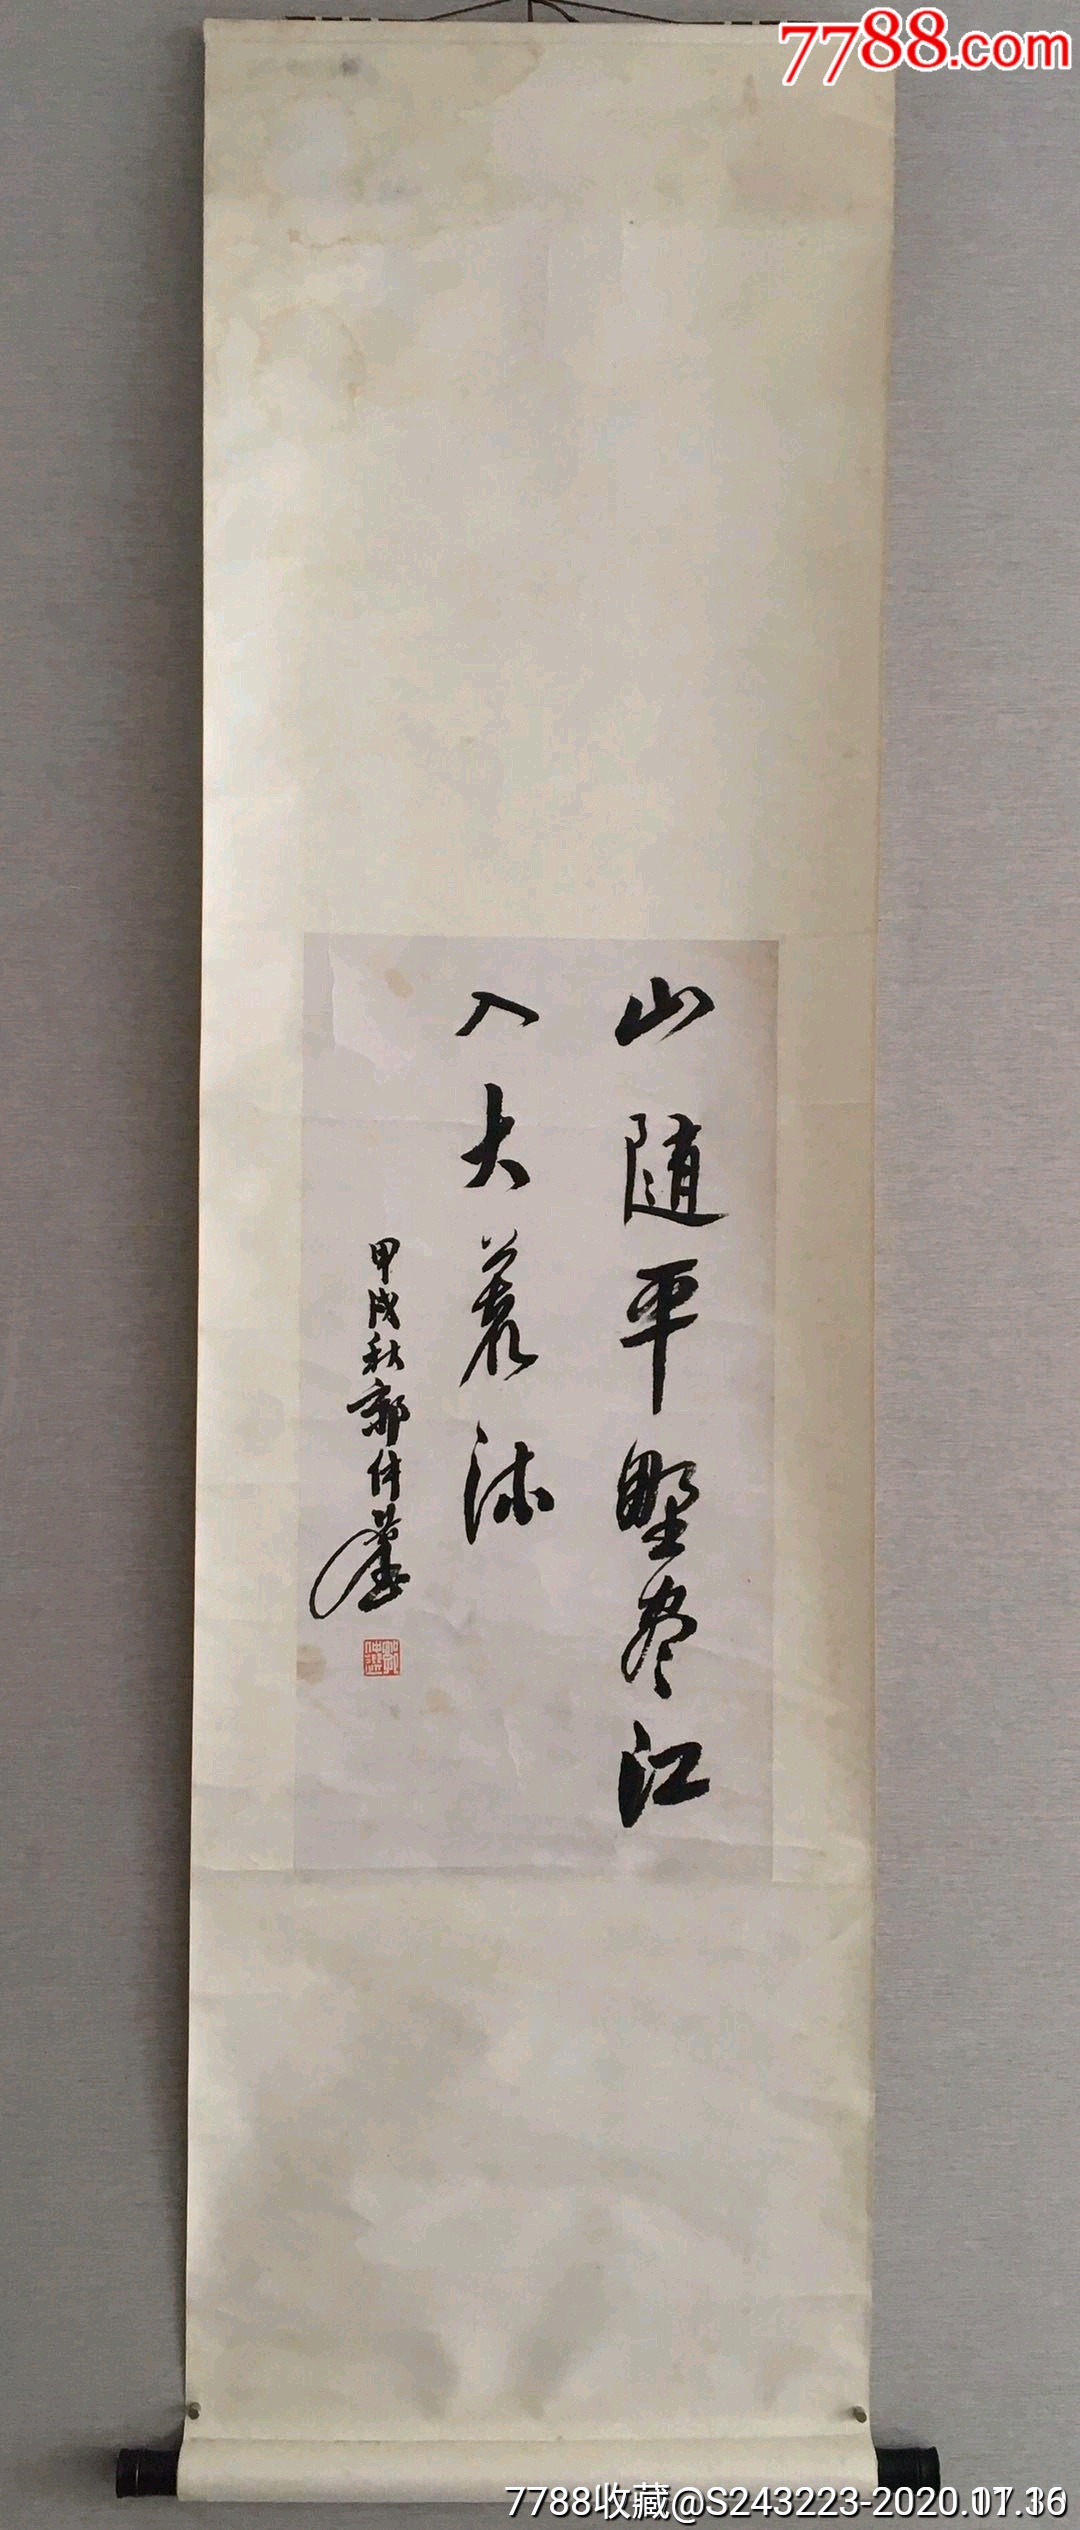 7788.com
山随平野尽江
入大荒流
甲戌秋郭仲選
7788收藏@S243223-2020.